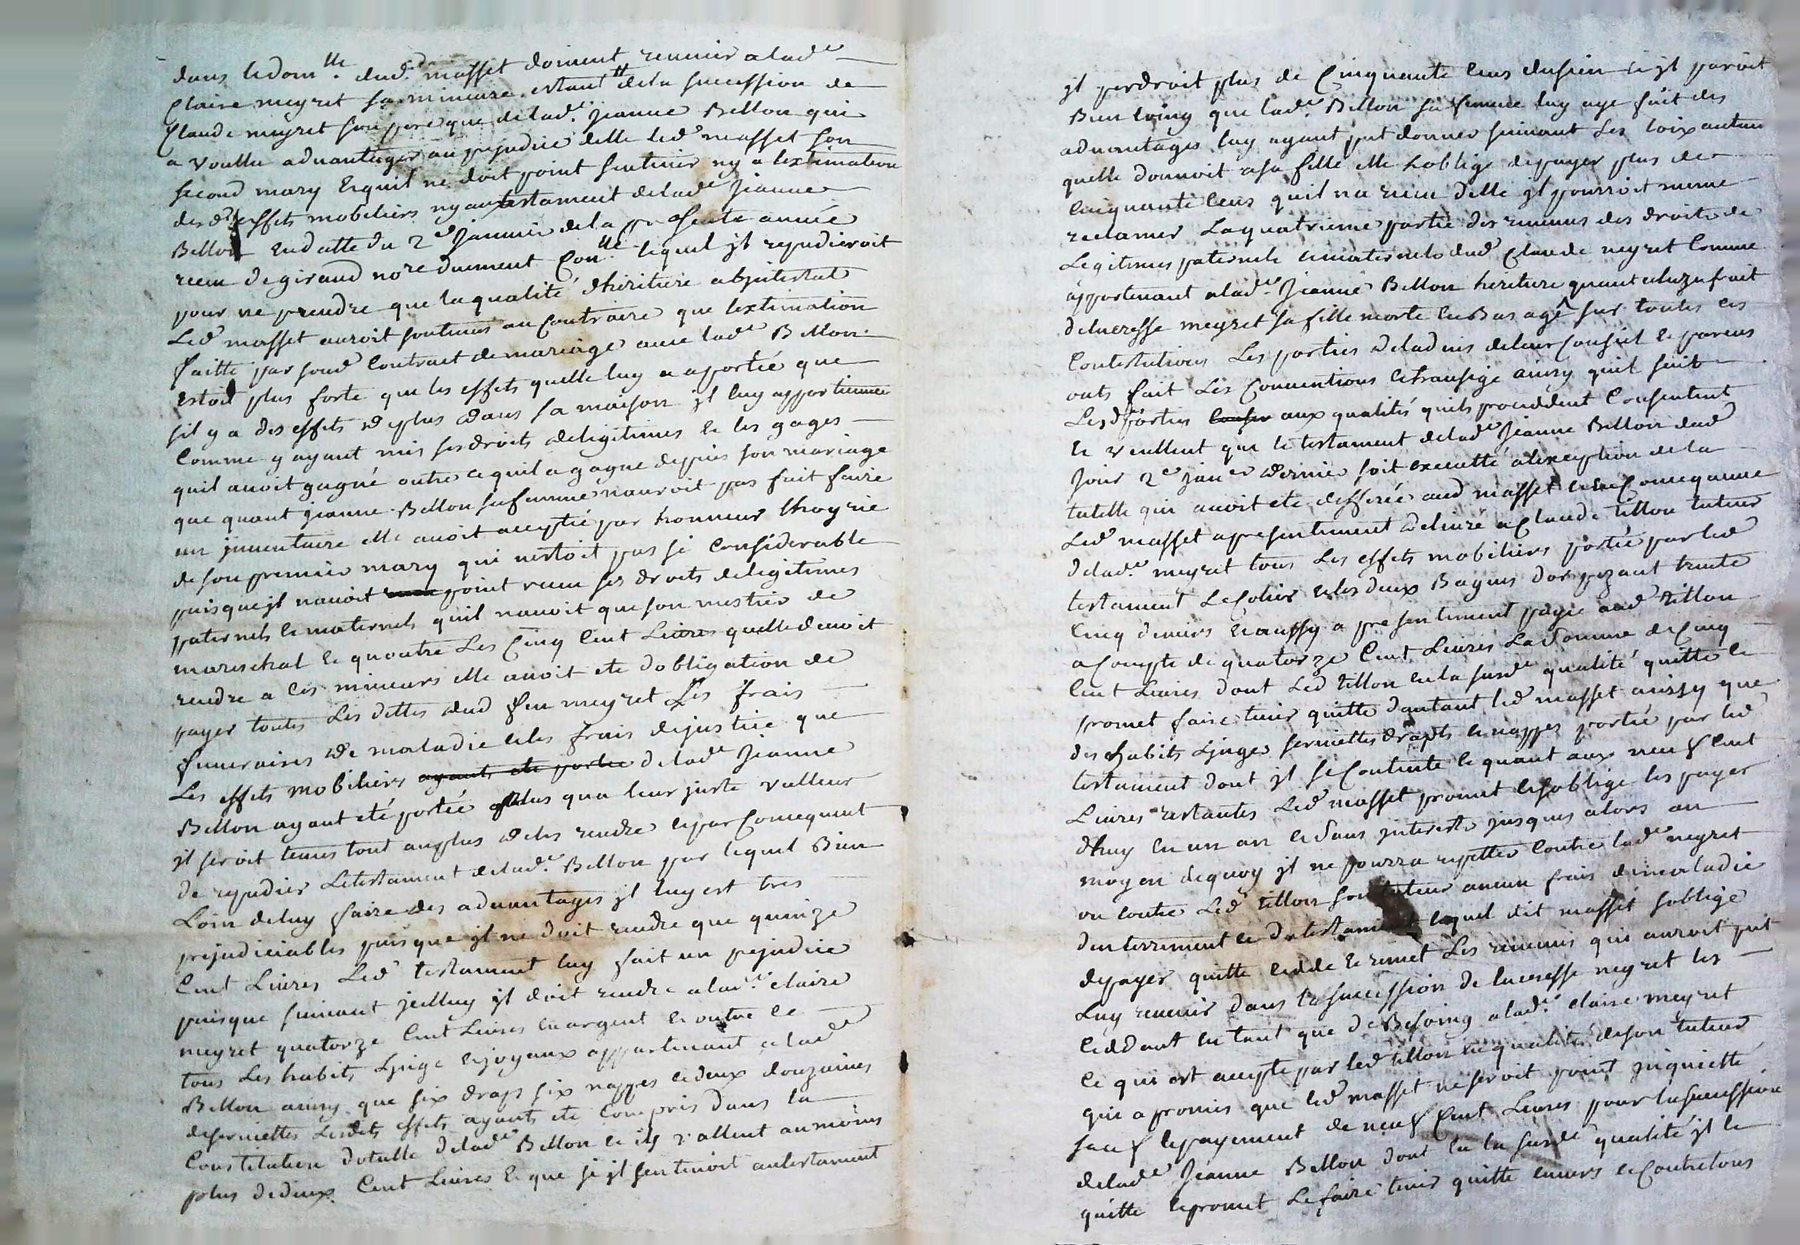 dans ledom.lle dud. masset doivent revenir a lad.e
Claire meyret sa mineure estant de la succession de
Claude meyret son pere que de lad.e Jeanne Bellon qui
a voullu advantager au prejudice delle led. masset son
second mary lequel ne doit point sentenir ny a lextimation
des d. effets mobiliers ny au testament de lad.e Jeanne
Bellon en datte du 2e Janvier de la presente année
receu de giraud nore duement Con.lle lequel jl repudieroit
pour ne prendre que la qualité dheritiere abjntestat
Led. masset auroit soutenu au Contraire que lextimation
faitte par sond. Contract de mariage avec lad.e Bellon
Estoit plus forte que les effets quelle luy a aportée que
sil y a des effets de plus dans sa maison jl luy appartiennent
Comme y ayant mis ses droits de legitimes et les gages
quil avoit gagné outre ce quil a gagne depuis son mariage
que quant Jeanne Bellon sa femme nauroit pas fait faire
un jnventaire elle avoit acceptée par honneur lhoyrie
de son premier mary qui nestoit pas si Considerable
puisque jl navoit point receu ses droits de legitimes
paternels et maternels quil navoit que son mestier de
mareschal et quoutre Les Cinq Cent Livres quelle devoit
rendre a ces mineurs elle avoit ete dobligation de
payer toutes Les dettes dud. feu meyret Les frais
funeraires de maladie et les frais de justice que
Les effets mobiliers ayants ete portée de lad.e Jeanne
Bellon ayant eté portée plus qua leur juste valleur
jl seroit tenus tout au plus de les rendre et par Consequent
de repudier Le testament de lad.e Bellon par lequel Bien
Loin de luy faire des advantages jl luy est tres
prejudiciables puisque jl ne doit rendre que quinze
Cent Livres Led. testament luy fait un prejudice
puisque suivant jcelluy jl doit rendre a lad.e Claire
meyret quatorze Cent Livres en argent et outre ce
tous Les habits Ljnge et joyaux appartenant a lad.e
Bellon ainsy que six draps six nappes et deux douzaines
de serviettes Lesdits effets ayants ete Compris dans la
Constitution dotalle de lad.e Bellon et ils vallent au moins
plus de deux Cent Livres et que si jl sentenoit au testament
jl perdroit plus de Cinquante Ecus du sien et jl paroit
Bien loing que lad.e Bellon sa femme luy aye fait des
advantages luy ayant put donner suivant Les loix autan
quelle donnoit a sa fille elle Loblige de payer plus de
Cinquante Ecus quil na receu delle jl pourroit meme
reclamer La quatrieme partie des revenus des droits de
Legitimes paternels et maternels dud. Claude meyret Comme
appartenant a lad.e Jeanne Bellon heritiere quant a luzufruit
de lucresse meyret sa fille morte en Bas agê sur toutes ces
Contestations Les parties de ladvis de leur Conseil et parens
onts fait Les Conventions et transige ainsy quil suit
Lesd. parties aux qualités quils procedent Consentent
et veullent que le testament de lad.e Jeanne Bellon dud.
Jour 2e jan.er dernier soit executté a lexception de la
tutelle qui avoit ete defferée aud. masset et en Consequence
Led. masset a presentement delivré a Claude tillon tuteur
de lad.e meyret tous Les effets mobiliers portée par led.
testament Le Colier et les deux Bagues dor pezant trente
Cinq deniers et aussy a presentement payé aud. tillon
a Compte de quatorze Cent Livres La somme de Cinq
Cent Livres dont Led. tillon en la sus d. qualité quitte et
promet faire tenir quitte dautant led. masset aissy que
des habits Ljnges serviettes draps et nappes portée par led.
testament dont jl se Contente et quant aux neuf Cent
Livres restantes Led. masset promet et soblige les payer
dhuy en un an et sans jnterests jusques alors au
moyen de quoy jl ne pourra repetter Contre lad.e meyret
ou Contre Led. tillon son tuteur aucun frais de maladie
denterrement et du testament lequel dit masset soblige
de payer quitte cedde et remet Les revenus qui auroit put
Luy revenir dans la succession de lucresse meyret les
ceddant en tant que de Besoing a lad.e Claire meyret
Ce qui est accepté par led. tillon en qualité de son tuteur
qui a promis que led. masset ne seroit point jnquietté
sauf le payement de neuf Cent Livres pour la succession
de lad.e Jeanne Bellon dont en la sus de qualité jl le
quitte et promet Le faire tenir quitte envers et Contre tous